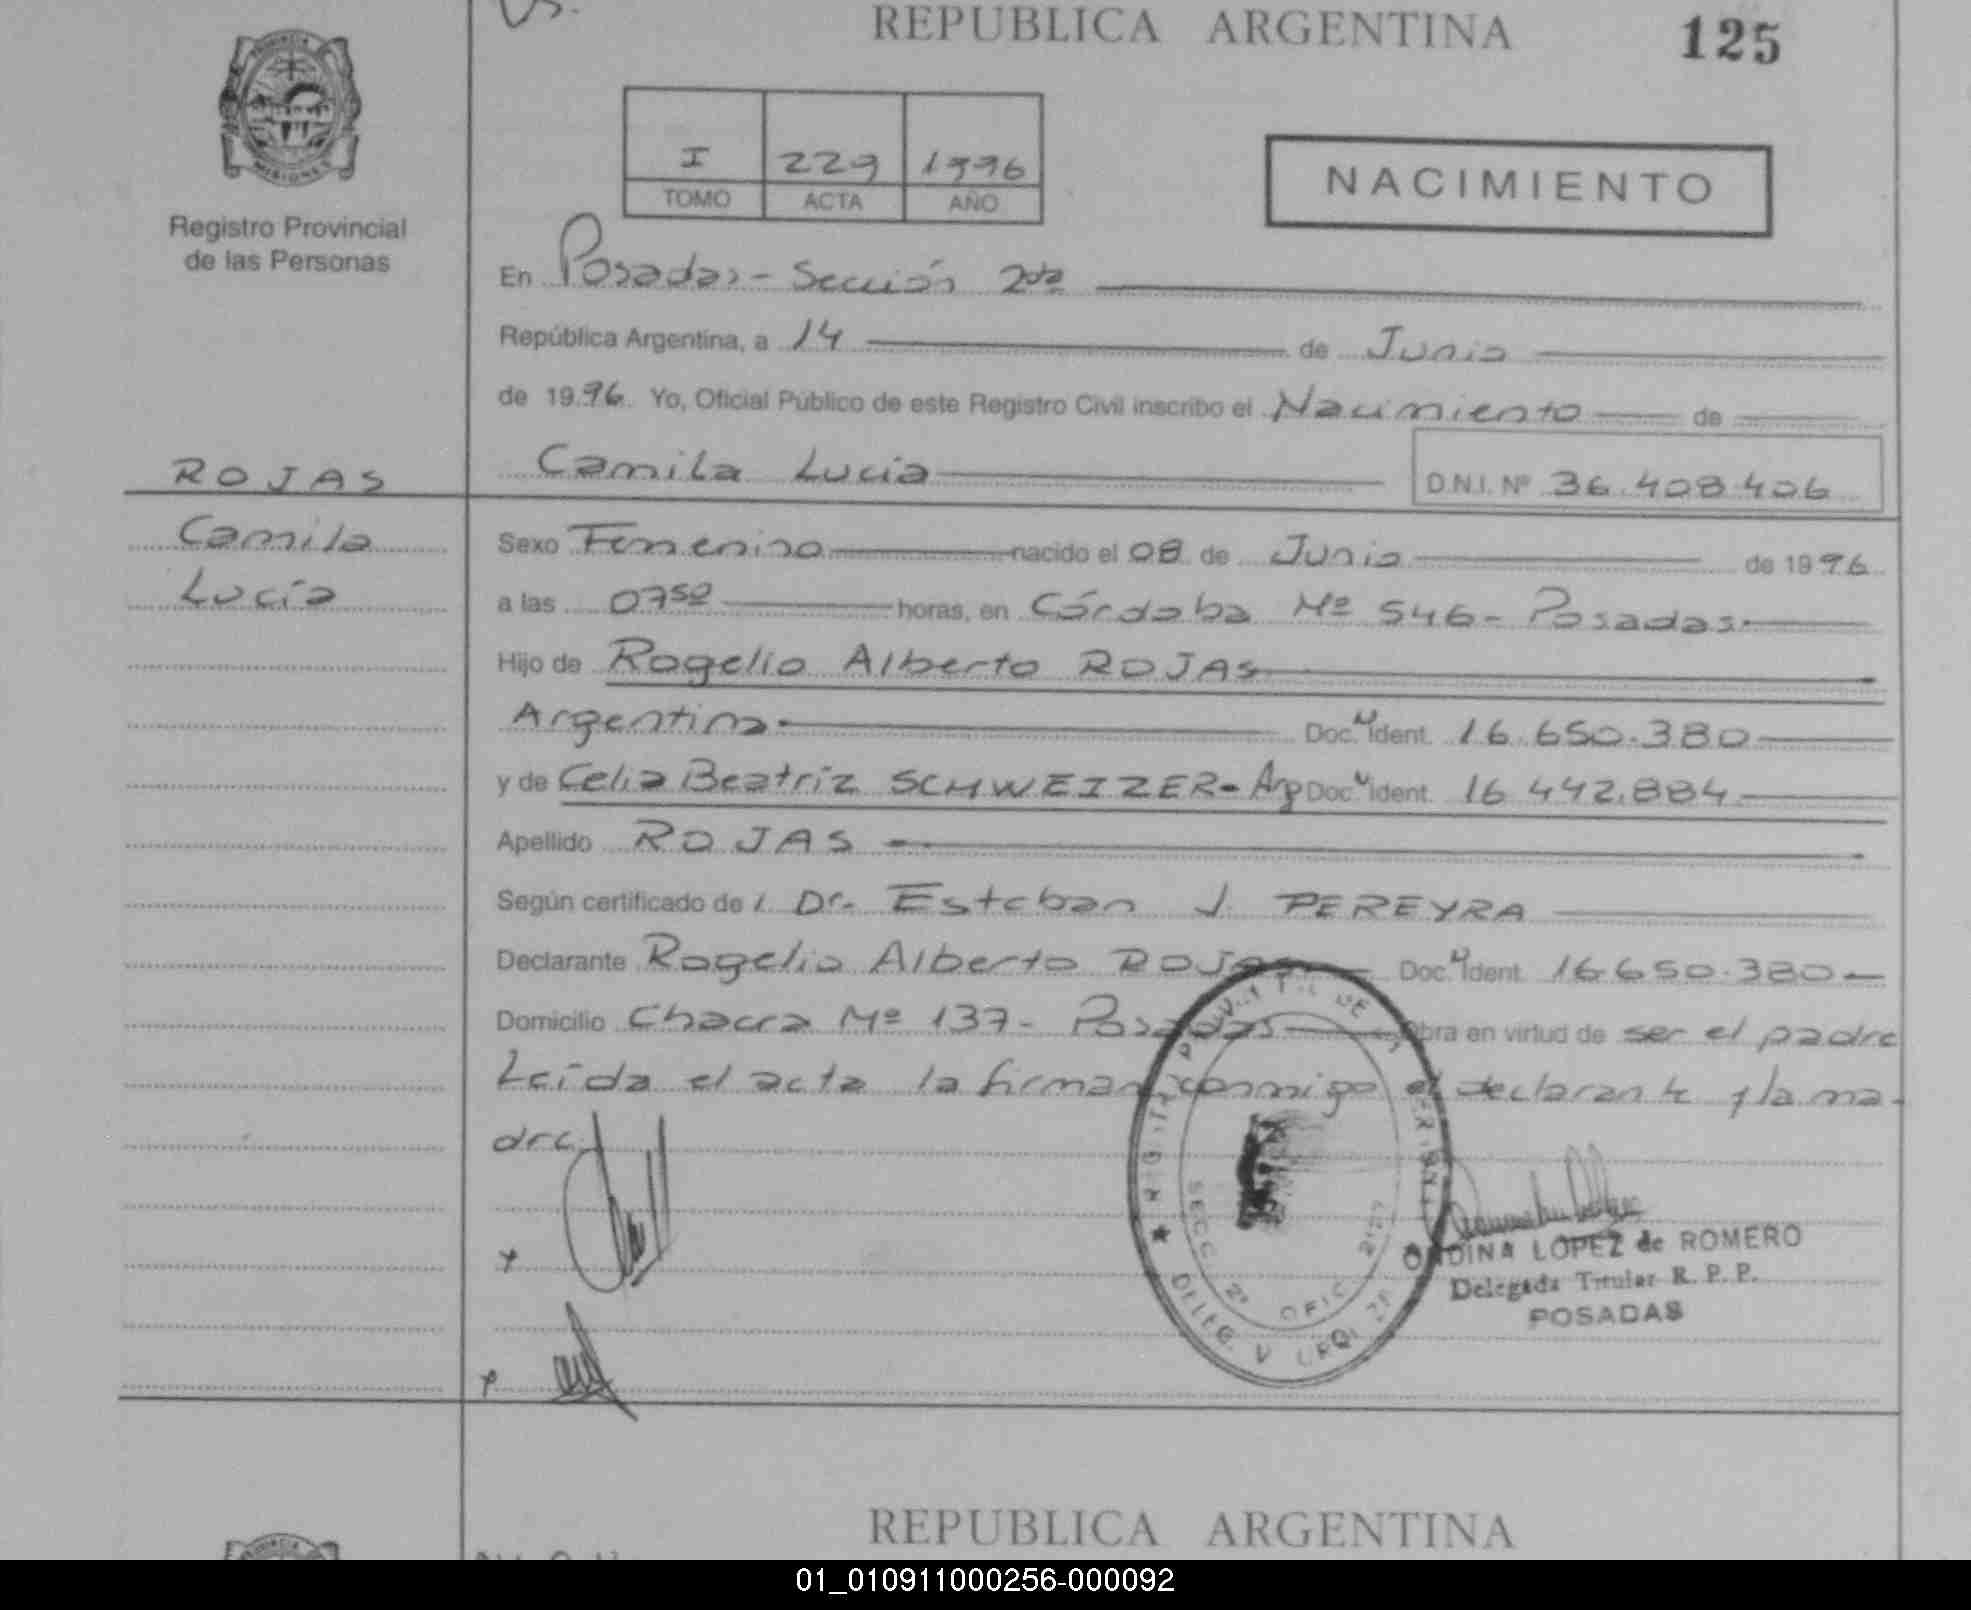 REPUBLICA ARGENTINA
125
PROVINCIA
MISIONES
Registro Provincial
de las Personas
I 229 1996
TOMO ACTA AÑO
NACIMIENTO
En Posadas - Sección 2da
República Argentina, a 14 de Junio
de 1996. Yo, Oficial Público de este Registro Civil inscribo el Nacimiento de
ROJAS
Camila Lucía
D.N.I. Nº 36.408.406
Camila
Lucía
Sexo Femenino nacido el 08 de Junio de 1996
a las 07⁵⁰ horas, en Córdoba Nº 546 - Posadas
Hijo de Rogelio Alberto ROJAS
Argentina Doc. N Ident. 16.650.380
y de Celia Beatriz SCHWEIZER - Arg Doc. N Ident. 16.442.884
Apellido ROJAS
Según certificado de Dr. Esteban J. PEREYRA
Declarante Rogelio Alberto ROJAS Doc. N Ident. 16.650.380
Domicilio Chacra Nº 137 - Posadas Obra en virtud de ser el padre
Leída el acta la firman conmigo el declarante y la ma-
dre.
SECC 2º OFIC
DELEG.
LOPEZ de ROMERO
Delegada Titular R. P. P.
POSADAS
REPUBLICA ARGENTINA
01_010911000256-000092